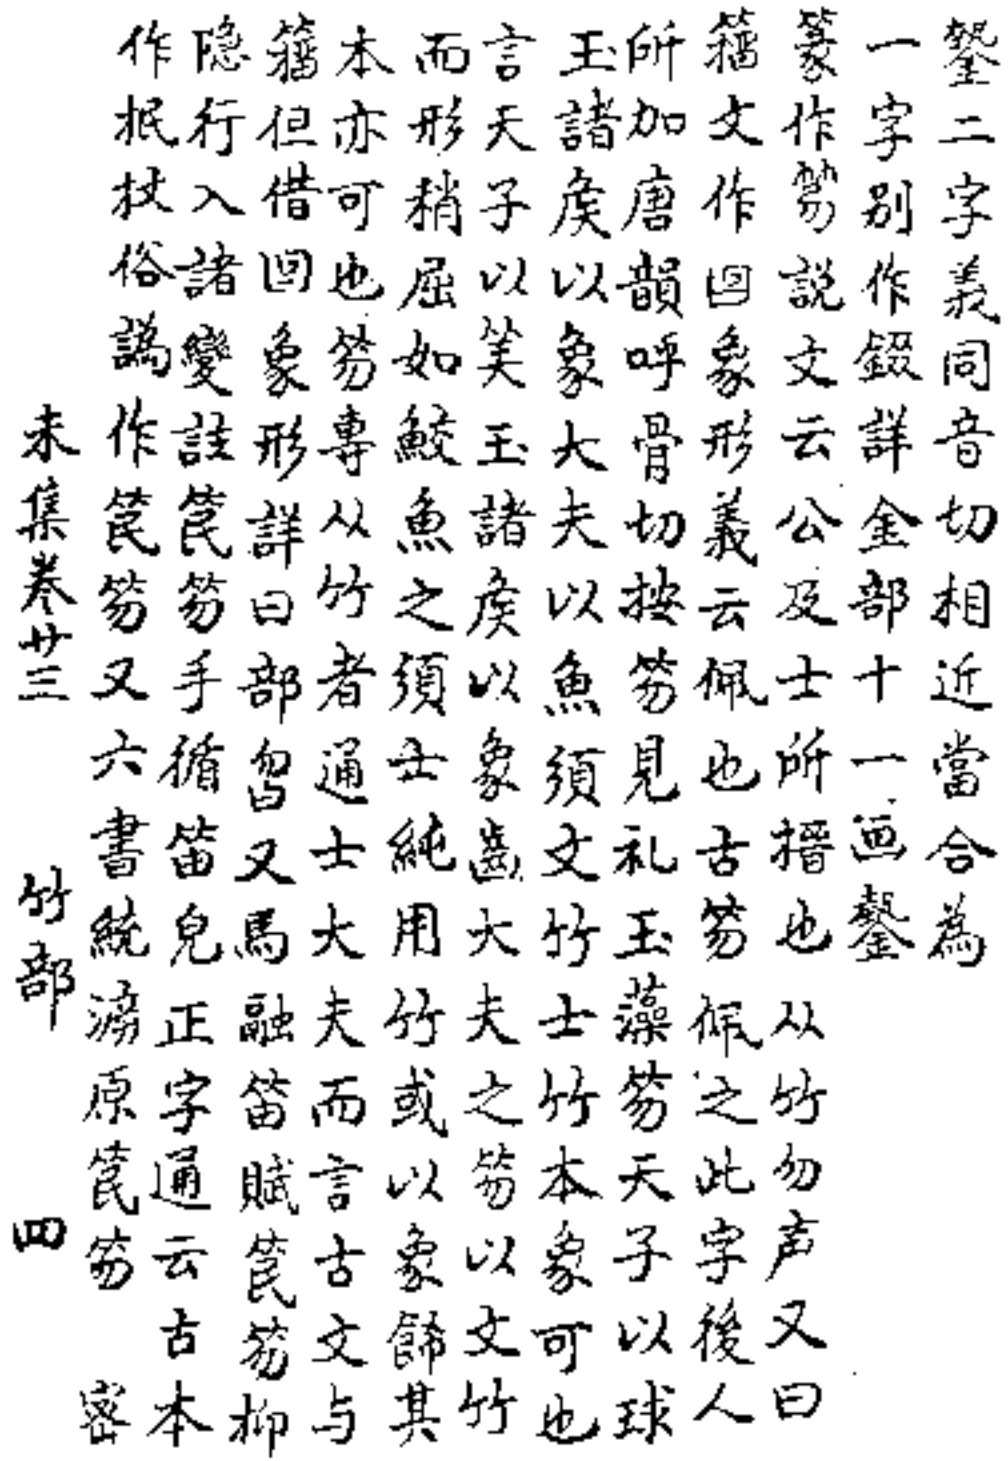 鏧二字義同音切相近當合為
一字別作錣詳金部十一画鏧
篆作笏説文云公及士所搢也从竹勿声又曰
籒文作回象形義云佩也古笏佩之此字後人
所加唐韻呼骨切按笏見礼玉藻笏天子以球
玉諸矦以象大夫以魚須文竹士竹本象可也
言天子以美玉諸矦以象齒大夫之笏以文竹
而形稍屈如鮫魚之須士純用竹或以象飾其
本亦可也笏專从竹者通士大夫而言古文与
籒但借回象形詳曰部曶又馬融笛賦笢笏抑
隐行入諸變註笢笏手循笛皃正字通云古本
作抿扙俗譌作笢笏又六書統滂原笢笏 密
未集卷廿三 竹部 四